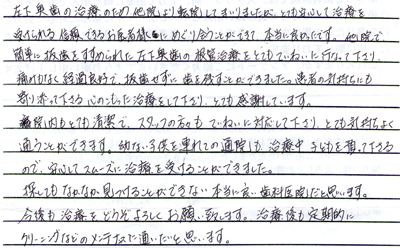 左下奥歯の治療のため他院より転院してまいりましたが、とても安心して治療を
受けられる信頼できるお医者様にめぐり会うことができて本当に良かったです。他院で
簡単に抜歯をすすめられた左下奥歯の根管治療をとてもていねいに行なって下さり、
痛みもなく経過良好で、抜歯せずに歯を残すことができました。患者の気持ちにも
寄り添って下さる心のこもった治療をして下さり、とても感謝しています。
院内もとても清潔で、スタッフの方々もていねいに対応して下さり、とても気持ちよく
通うことができます。幼ない子供を連れての通院も治療中子どもを見て下さる
ので、安心してスムーズに治療を受けることができました。
探してもなかなか見つけることができない本当に良い歯科医院だと思います。
今後も治療をどうぞよろしくお願い致します。治療後も定期的に
クリーニングなどのメンテナスに通いたいと思います。